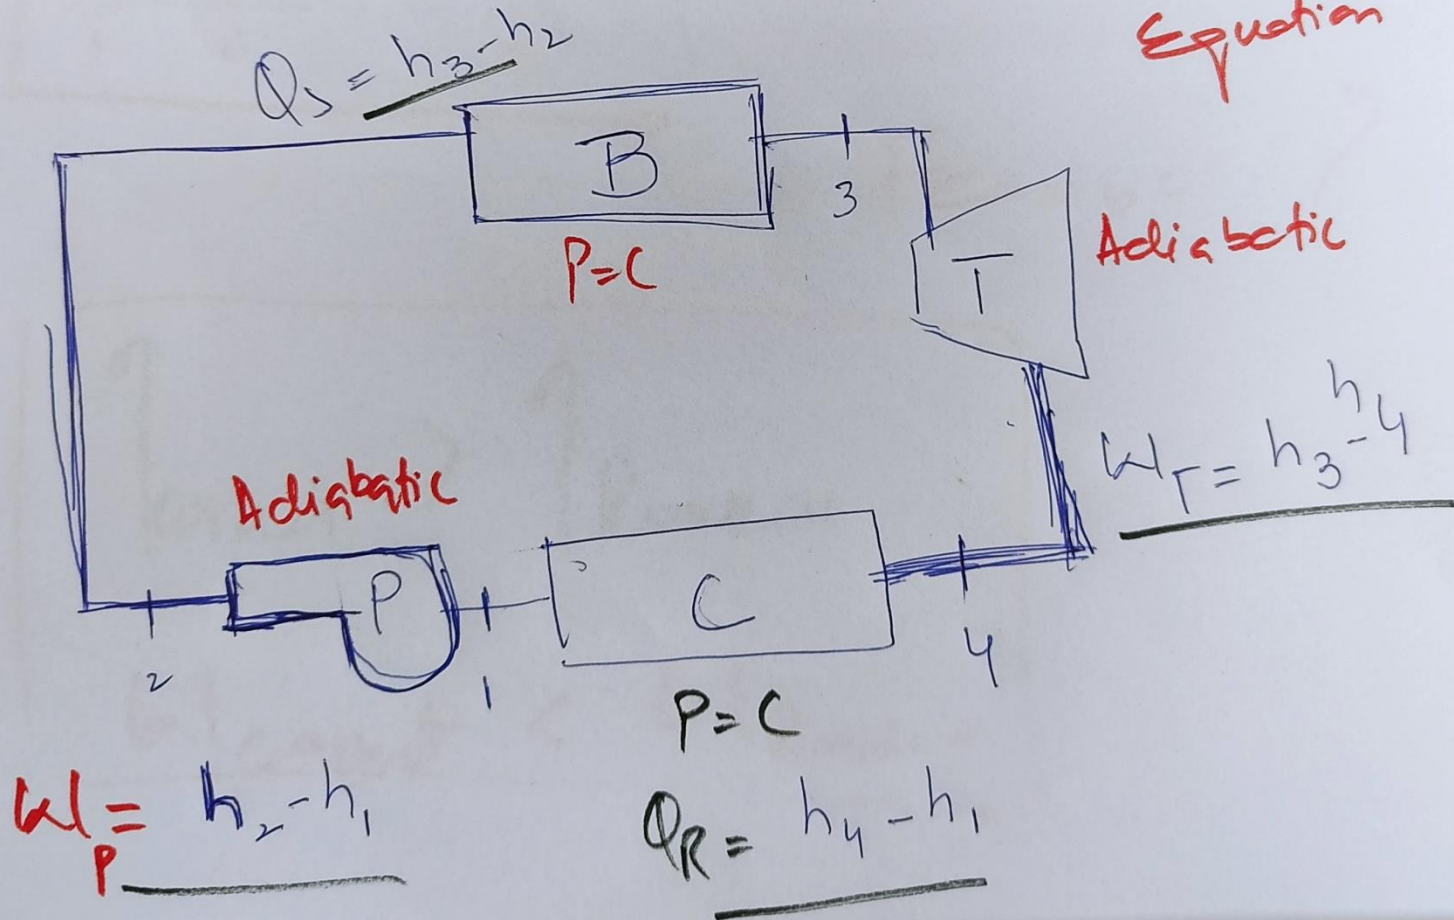 Equation
Qs = h3-h2
B
3
P=C
T
Adiabatic
WT = h3-h4
Adiabatic
P
C
2
1
4
P=C
WP = h2-h1
QR = h4-h1